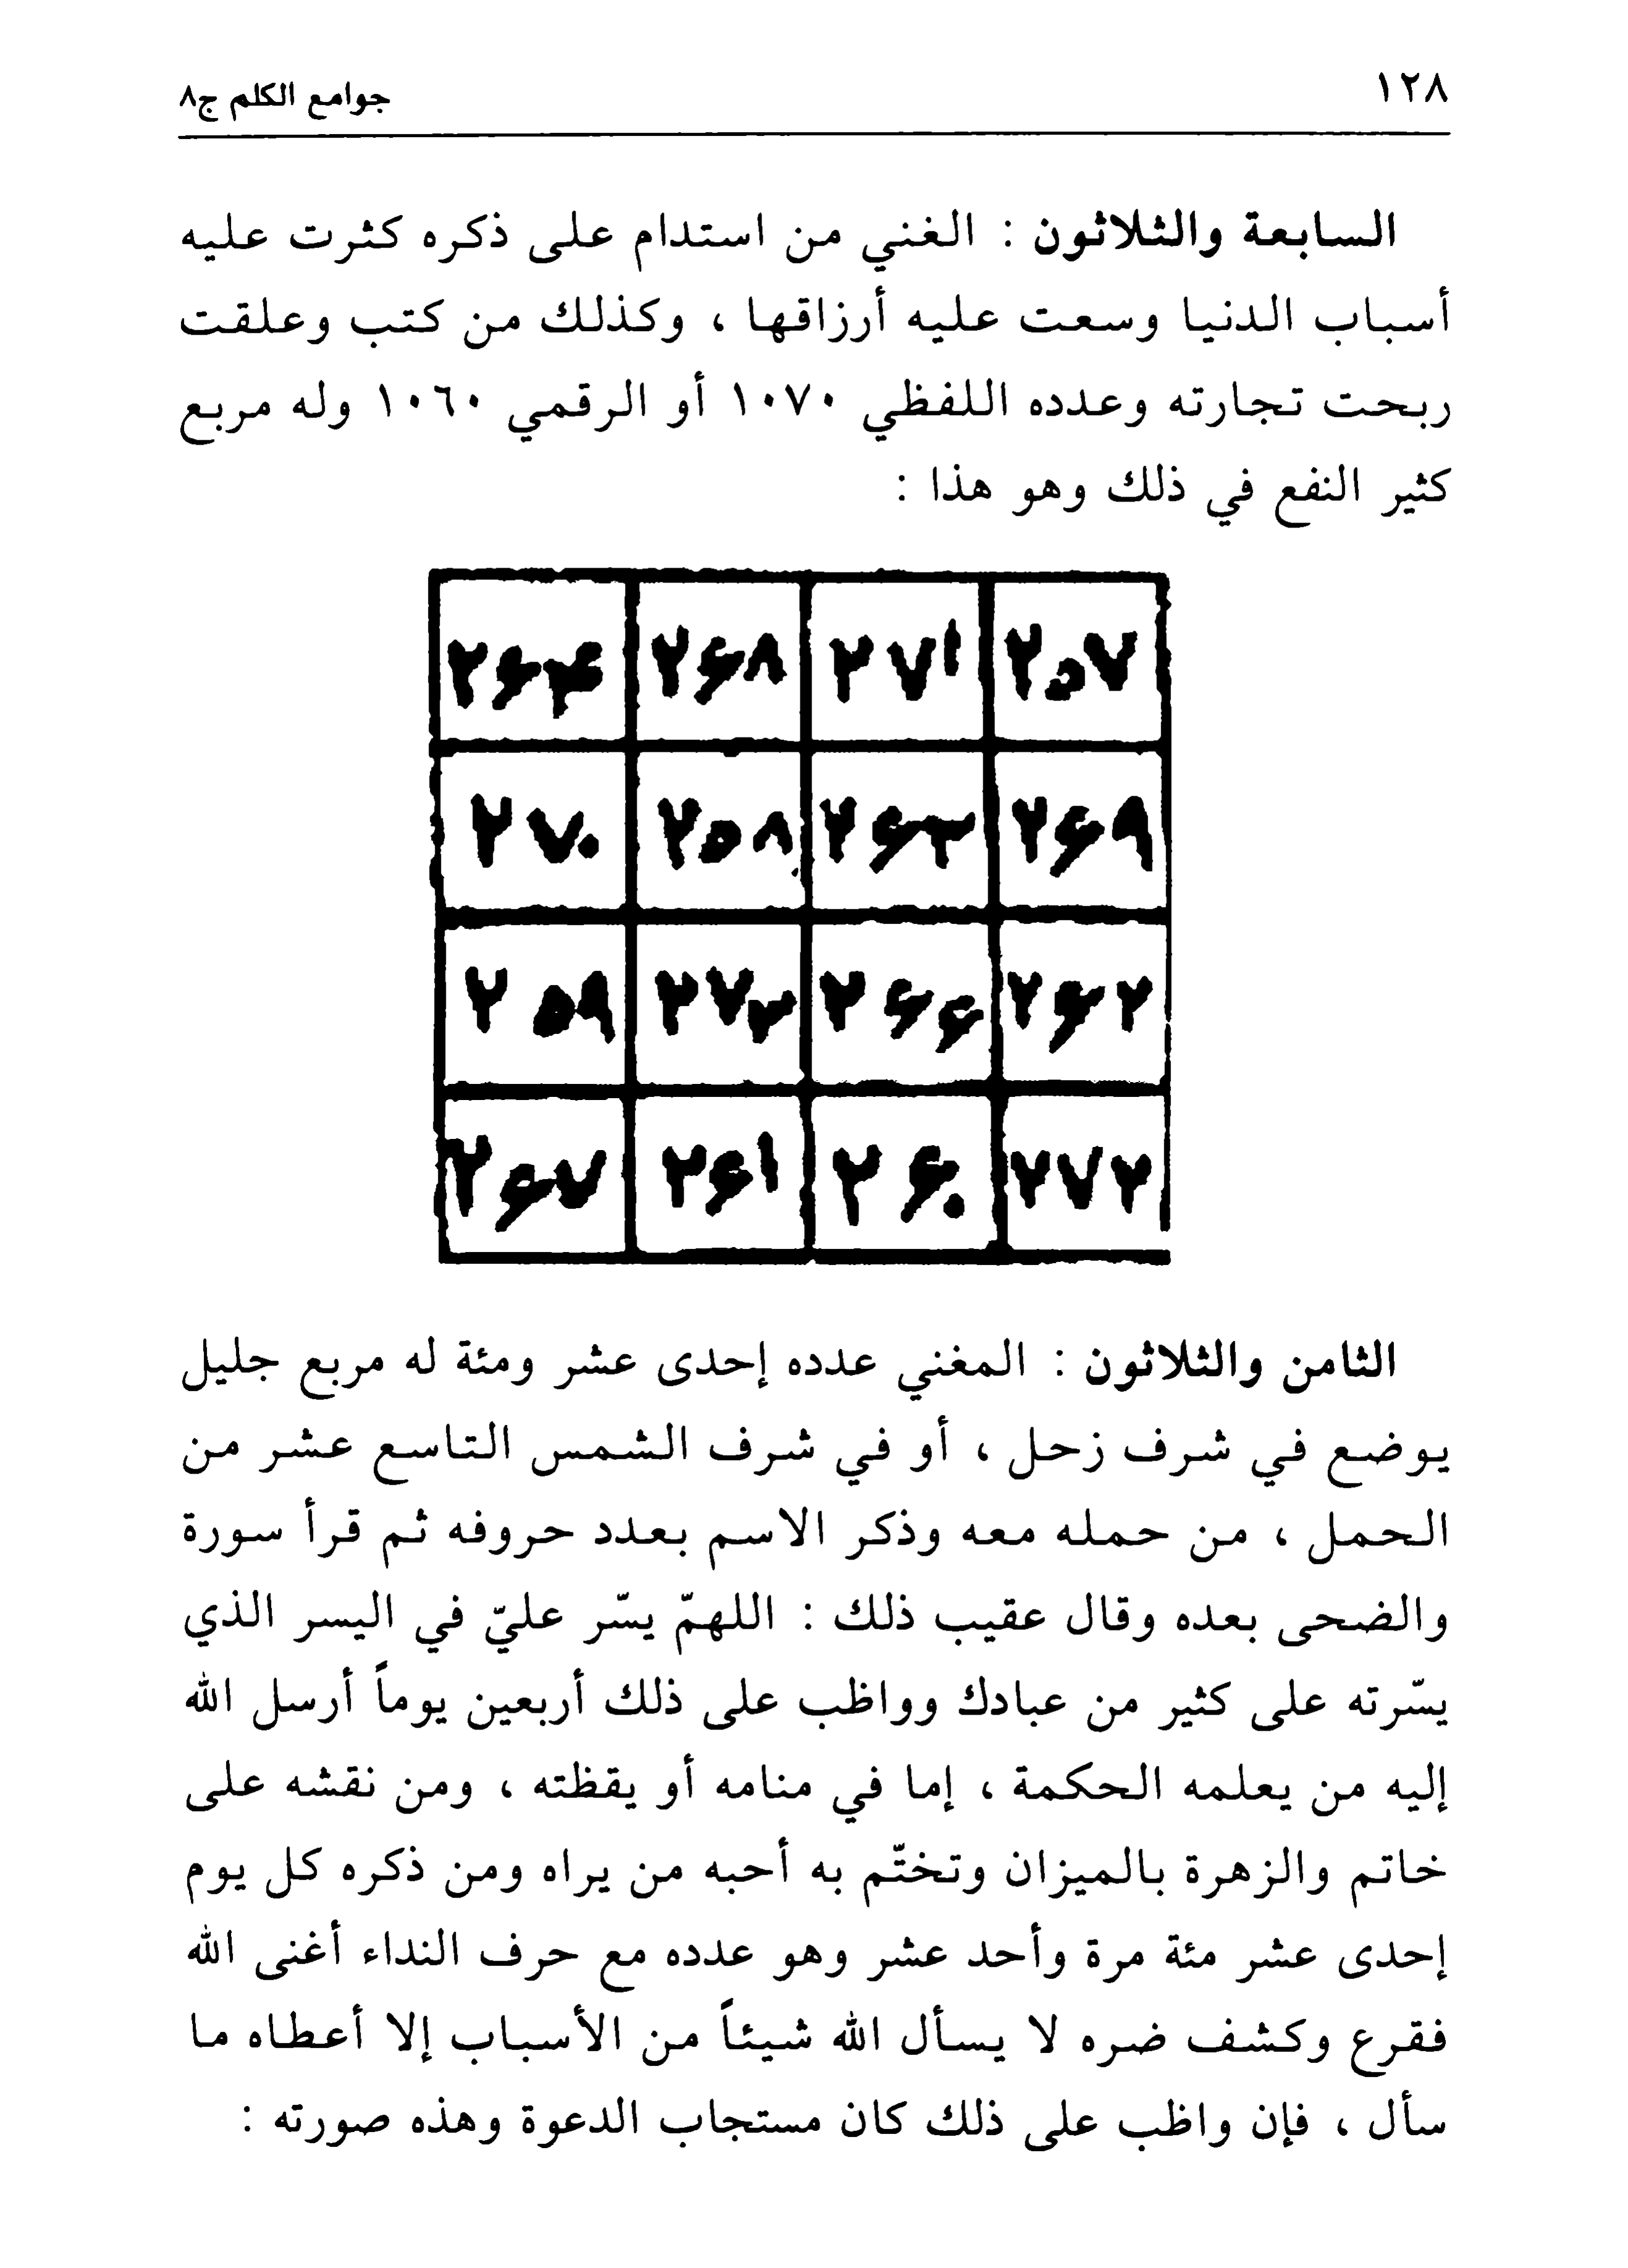 ١٢٨ جوامع الكلم ج٨
السابعة والثلاثون : الغني من استدام على ذكره كثرت عليه
أسباب الدنيا وسعت عليه أرزاقها ، وكذلك من كتب وعلقت
ربحت تجارته وعدده اللفظي ١٠٧٠ أو الرقمي ١٠٦٠ وله مربع
كثير النفع في ذلك وهو هذا :
۲۵۷ ۲۷۱ ۲۶۸ ۲۶۴
۲۶۹ ۲۶۳ ۲۵۸ ۲۷۰
۲۶۲ ۲۶۶ ۲۷۳ ۲۵۹
۲۷۲ ۲۶۰ ۲۶۱ ۲۶۷
الثامن والثلاثون : المغني عدده إحدى عشر ومئة له مربع جليل
يوضع في شرف زحل ، أو في شرف الشمس التاسع عشر من
الحمل ، من حمله معه وذكر الاسم بعدد حروفه ثم قرأ سورة
والضحى بعده وقال عقيب ذلك : اللهمّ يسّر عليّ في اليسر الذي
يسّرته على كثير من عبادك وواظب على ذلك أربعين يوماً أرسل الله
إليه من يعلمه الحكمة ، إما في منامه أو يقظته ، ومن نقشه على
خاتم والزهرة بالميزان وتختّم به أحبه من يراه ومن ذكره كل يوم
إحدى عشر مئة مرة وأحد عشر وهو عدده مع حرف النداء أغنى الله
فقرع وكشف ضره لا يسأل الله شيئاً من الأسباب إلا أعطاه ما
سأل ، فإن واظب على ذلك كان مستجاب الدعوة وهذه صورته :